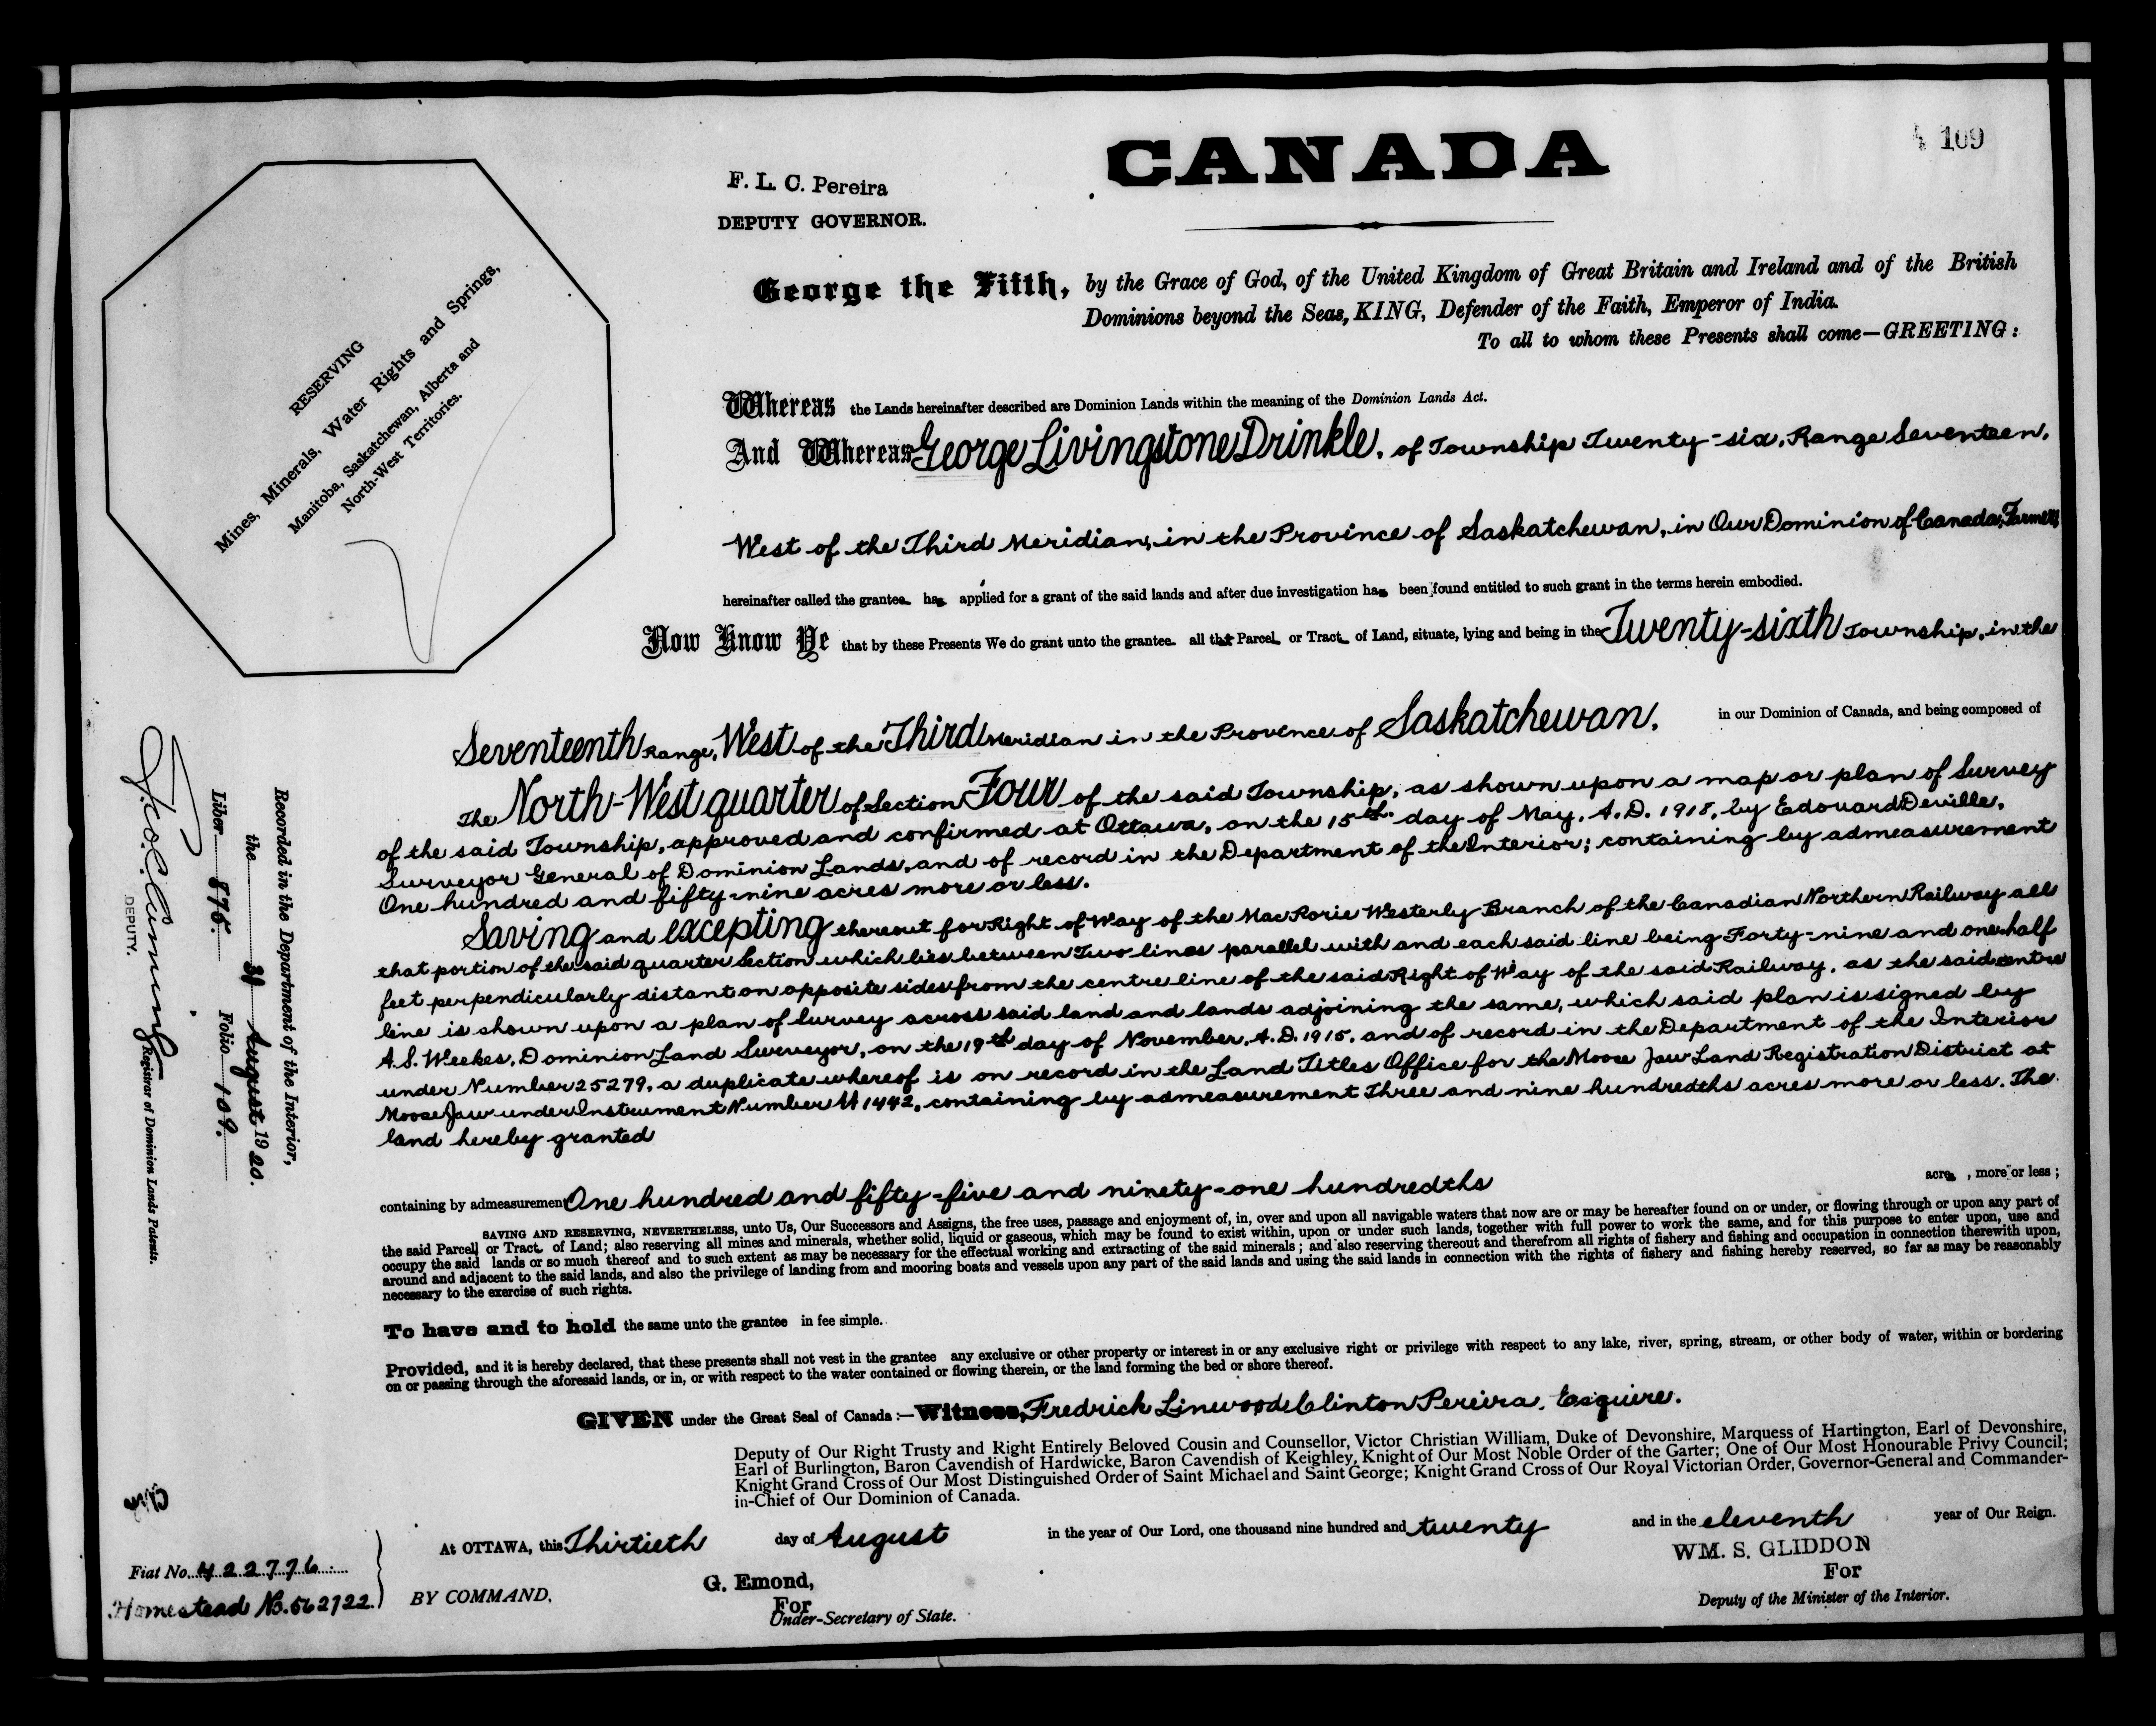 CANADA
109
F. L. C. Pereira
DEPUTY GOVERNOR.
George the Fifth, by the Grace of God, of the United Kingdom of Great Britain and Ireland and of the British
Dominions beyond the Seas, KING, Defender of the Faith, Emperor of India.
To all to whom these Presents shall come—GREETING:
RESERVING
Mines, Minerals, Water Rights and Springs,
Manitoba, Saskatchewan, Alberta and
North-West Territories.
Whereas the Lands hereinafter described are Dominion Lands within the meaning of the Dominion Lands Act.
And Whereas George Livingstone Drinkle, of Township Twenty-six, Range Seventeen,
West of the Third Meridian, in the Province of Saskatchewan, in Our Dominion of Canada, Farmer,
hereinafter called the grantee has applied for a grant of the said lands and after due investigation has been found entitled to such grant in the terms herein embodied.
Now Know Ye that by these Presents We do grant unto the grantee all that Parcel or Tract of Land, situate, lying and being in the Twenty-sixth Township, in the
Seventeenth Range, West of the Third Meridian in the Province of Saskatchewan, in our Dominion of Canada, and being composed of
The North-West quarter of Section Four of the said Township, as shown upon a map or plan of Survey
of the said Township, approved and confirmed at Ottawa, on the 15th day of May, A.D. 1918, by Edouard Deville,
Surveyor General of Dominion Lands, and of record in the Department of the Interior; containing by admeasurement
One hundred and fifty-nine acres more or less.
Saving and excepting thereout for Right of Way of the MacRorie Westerly Branch of the Canadian Northern Railway all
that portion of the said quarter Section which lies between Two lines parallel with and each said line being Forty-nine and one half
feet perpendicularly distant on opposite sides from the centre line of the said Right of Way of the said Railway, as the said centre
line is shown upon a plan of Survey across said land and lands adjoining the same, which said plan is signed by
A.S. Weekes, Dominion Land Surveyor, on the 19th day of November, A.D. 1915, and of record in the Department of the Interior
under Number 25279, a duplicate whereof is on record in the Land Titles Office for the Moose Jaw Land Registration District at
Moose Jaw under Instrument Number 1442, containing by admeasurement Three and nine hundredths acres more or less. The
land hereby granted
containing by admeasurement One hundred and fifty-five and ninety-one hundredths acres, more or less;
SAVING AND RESERVING, NEVERTHELESS, unto Us, Our Successors and Assigns, the free uses, passage and enjoyment of, in, over and upon all navigable waters that now are or may be hereafter found on or under, or flowing through or upon any part of
the said Parcel or Tract of Land; also reserving all mines and minerals, whether solid, liquid or gaseous, which may be found to exist within, upon or under such lands, together with full power to work the same, and for this purpose to enter upon, use and
occupy the said lands or so much thereof and to such extent as may be necessary for the effectual working and extracting of the said minerals; and also reserving thereout and therefrom all rights of fishery and fishing and occupation in connection therewith upon,
around and adjacent to the said lands, and also the privilege of landing from and mooring boats and vessels upon any part of the said lands and using the said lands in connection with the rights of fishery and fishing hereby reserved, so far as may be reasonably
necessary to the exercise of such rights.
To have and to hold the same unto the grantee in fee simple.
Provided, and it is hereby declared, that these presents shall not vest in the grantee any exclusive or other property or interest in or any exclusive right or privilege with respect to any lake, river, spring, stream, or other body of water, within or bordering
on or passing through the aforesaid lands, or in, or with respect to the water contained or flowing therein, or the land forming the bed or shore thereof.
GIVEN under the Great Seal of Canada:—Witness, Fredrick Linwood Clinton Pereira, Esquire.
Deputy of Our Right Trusty and Right Entirely Beloved Cousin and Counsellor, Victor Christian William, Duke of Devonshire, Marquess of Hartington, Earl of Devonshire,
Earl of Burlington, Baron Cavendish of Hardwicke, Baron Cavendish of Keighley, Knight of Our Most Noble Order of the Garter; One of Our Most Honourable Privy Council;
Knight Grand Cross of Our Most Distinguished Order of Saint Michael and Saint George; Knight Grand Cross of Our Royal Victorian Order, Governor-General and Commander-
in-Chief of Our Dominion of Canada.
At OTTAWA, this Thirtieth day of August in the year of Our Lord, one thousand nine hundred and twenty and in the eleventh year of Our Reign.
BY COMMAND,
G. Emond,
For
Under-Secretary of State.
WM. S. GLIDDON
For
Deputy of the Minister of the Interior.
Recorded in the Department of the Interior,
the 31 August 1920.
Liber 876. Folio 109.
Registrar of Dominion Lands Patents.
DEPUTY.
Fiat No. 422776
Homestead No. 562722